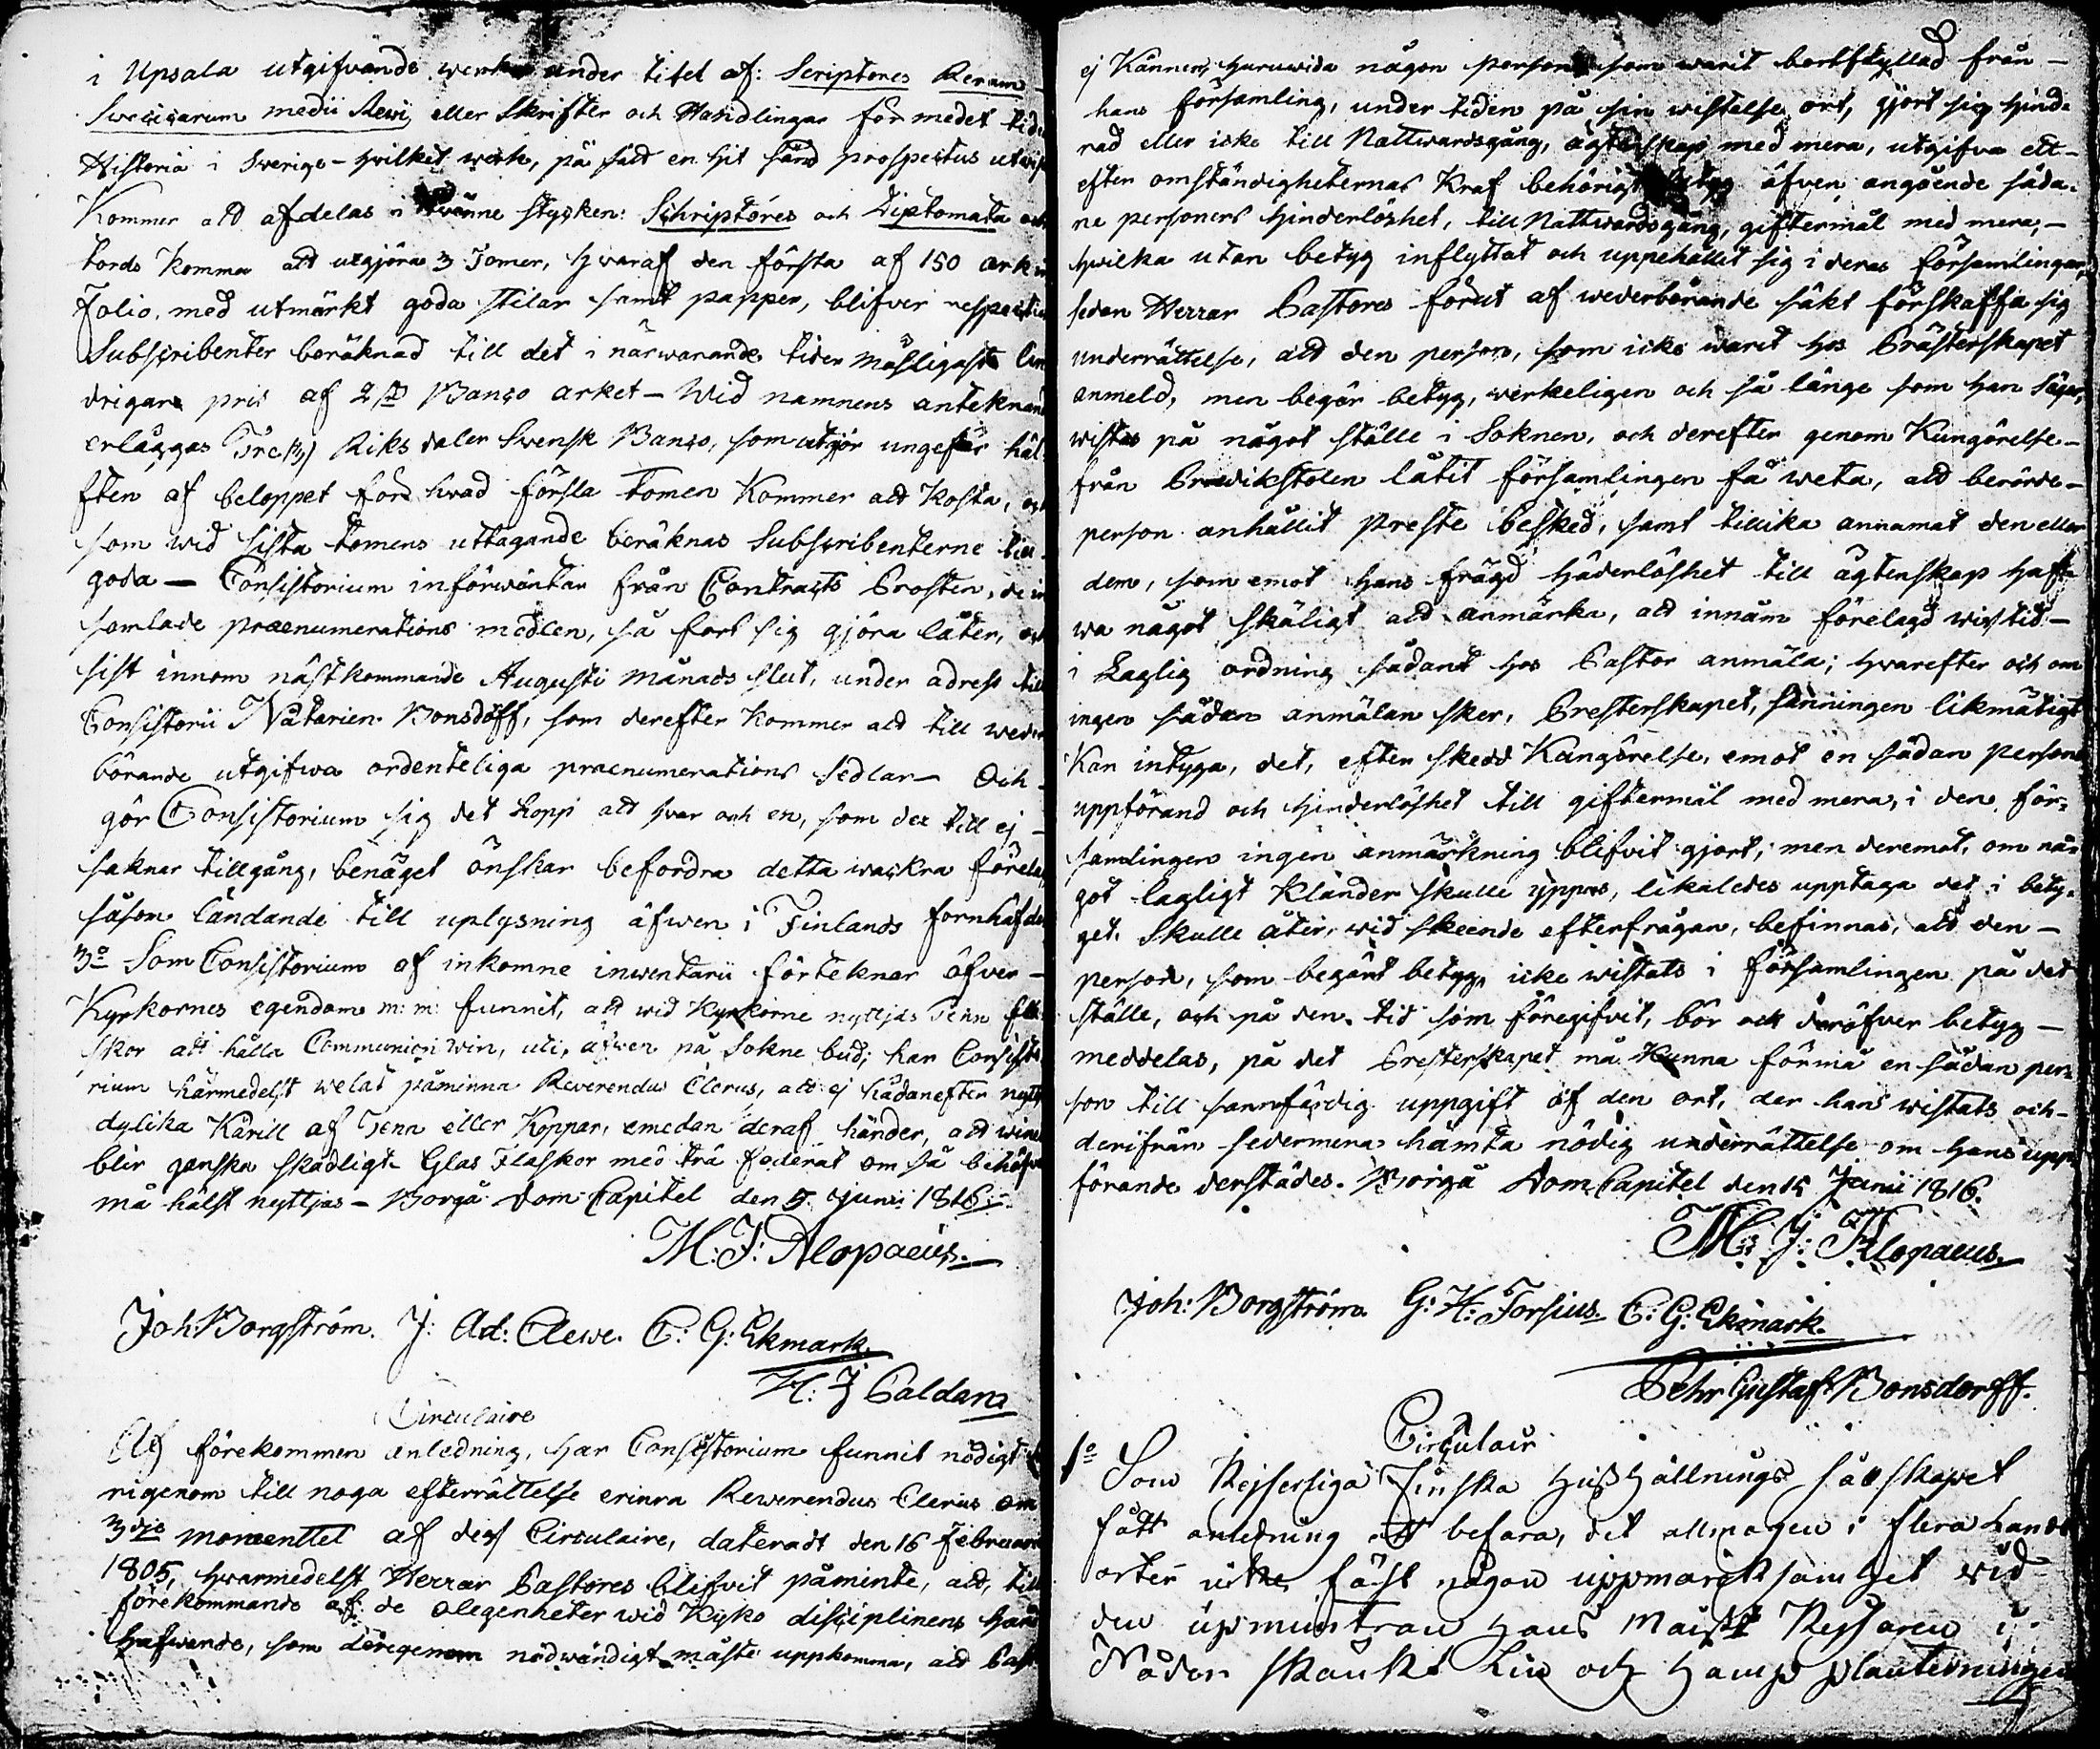 i Upsala utgifvande werk under titel af: Scriptores Rerum
Svecicarum medii Aewi, eller Skrifter och Handlingar för medel tid
Historia i Sverige – hvilket werk, på satt en hit sänd prospectus utwis
Kommer att afdelas i twänne stycken: Schriptores och Diplomata och
tords komma att utgjöra 3 Tomer, hwaraf den första af 150 ark i
Folio, med utmärkt goda stilar samt papper, blifver respective
Subscribenter beräknad till det i närwarande tider måsligaste lin
drigare pris af 2 ß Banco arket – Wid namnens anteknand
erlägges Tre (3) Riksdaler Swensk Banco, som utgör ungefär häl
ften af beloppet ford hvad första tomen Kommer att Kosta, och
som wid sista tomens uttagande beräknas Subscribenterne till
goda – Consistorium införwäntar från Contracts Prosten, de in
samlade praenumerations medlen, så fort sig gjöra låter, och
sist innom nästkommande Augusti månads slut, under adress till
Consistorii Natarien Bonsdöff, som derefter kommer att till weder
börande utgifwa ordenteliga praenumerations Sedlar – Och
gör Consistorium sig det hopp att hvar och en, som der till ej –
saknar tillgång, benäget önskar befordra detta wackra förela
såsom ländande till uplysning äfwen i Finlands fornhäfder
3o Som Consistorium af inkomne inwentarii förteknar öfver –
Kyrkornes egendom m: m: funnit, att wid Kyrkorne nyttjas Tenn fla
skor att hålla Communion Win, uti, äfwen på sokne bud; har Consisto
rium härmedelst welat påminna Reverendus Clerus, att ej hädanefter nytt
dylika Kärill af Tenn eller Koppar, emedan deraf händer, att wine
blir ganska skadligt. Glas Flaskor med trä foderat om så behöfwe
må hälst nyttjas – Borgå Dom Capitel den 5 Junii 1816.
M: J: Alopaeus.
Joh: Borgström. J: Ad: Clewe. C: G: Ekmark.
H: J Paldani
Circulaire
Af förekommen anledning, har Consistorium funnit nödigt
rigenom till noga efterrättelse erinra Rewerendus Clerus om
3dje momenttet af dess Circulaire, dateradt den 16 Februarii
1805, hwarmedelst Herrar Pastores blifvit påminte, att, till
förekommande af de olegenheter wid Kyrko disciplinens hand
hafwande, som derigenom nödwändigt måste uppkomma, att Past
ej Känner, huruwida någon person som warit bortflyttad från –
hans församling, under tiden på sin wistelse ort, gjort sig hind
rad eller icke till Nattwardsgång, ägtenskap med mera, utgifva ett –
efter omständigheternas Kraf behörigt betyg äfven angående såda
ne personers hinderlöshet, till Nattwardsgång, giftermål med mera, –
hwilka utan betyg inflyttat och uppehållit sig i deras församlingar,
sedan Herrar Pastores förut af wederbörande säkt förskaffa sig
underrättelse, att den person, som icke warit hos Prästerskapet
anmeld, men begär betyg, werkeligen och så länge som han säger,
wistas på något ställe i Soknen, och derefter genom Kungörelse –
från Predikstolen låtit församlingen få weta, att berörde –
person anhållit Preste besked, samt tillika annamat den eller
dem, som emot hans frägd häderlöshet till ägtenskap haft
wa något skäligt att anmärka, att innam förelagd wiss tid –
i Laglig ordning sådant hos Pastor anmäla; hwarefter och om
ingen sådan anmälan sker, Presterskapet, sanningen likmätigt
Kan intyga, det, efter skedd Kungörelse, emot en sådan persons
uppförand och hinderlöshet till giftermål med mera, i den för=
samlingen ingen anmärkning blifvit gjort; men deremot, om nå=
got lagligt Klander skulle yppas, likaledes upptaga det i bety=
get. Skulle åter, wid skeende efterfrågan, befinnas, att den –
person, som begärt betyg, icke wistats i församlingen på det
ställe, och på den tid som föregifvit, bör och deröfver betyg –
meddelas, på det Presterskapet må Kunna förmå en sådan per=
son till sannfärdig uppgift af den ort, der han wistats och –
derifrån sedermera hämta nödig underrättelse om hans upp=
förande derstädes. Borgå Dom Capitel den 15 Junii 1816.
M: J: Alopaeus.
Joh: Borgström. G: H: Forsius. C: G: Ekmark.
Pehr Gustaf Bonsdorff.
Circulair
1o Som Kejserliga Finska Hushållnings Sällskapet
fått anledning att befara, det allmogen i flera Lands
orter icke fäst någon uppmärksamhet wid
den upmuntran Hans Maijst Kejsaren i
Nåder skänkt Lin och Hamp planteringen